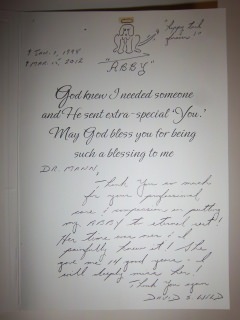 "Happy tail
"ABBY"
God knew I needed someone
and He sent extra-special 'You.'
May God bless you for being
such a blessing to me
DR. MANN,
Thank you so much
for your professional
care & compassion in putting
my ABBY to eternal rest!
Her time was over & I
painfully knew it! She
gave me 14 good years - I
will deeply miss her!
Thank you again